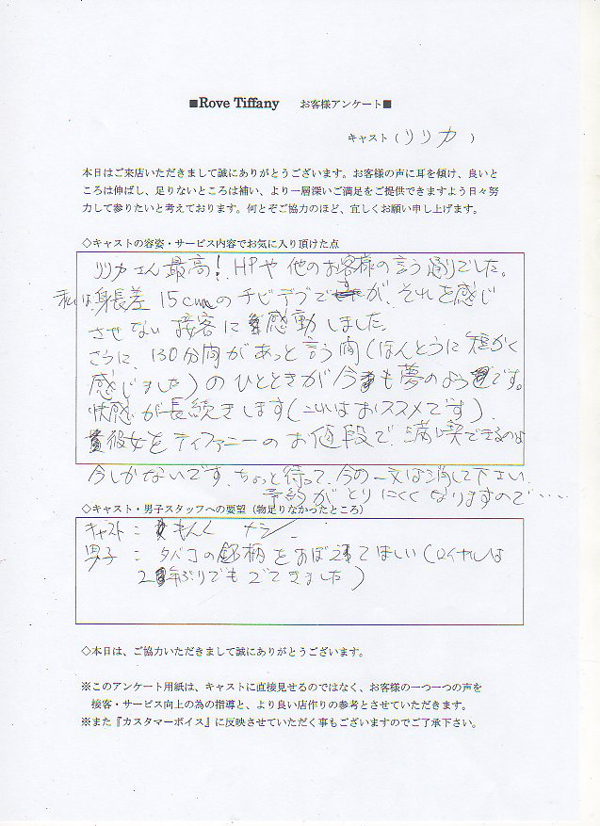 ■Rove Tiffany　お客様アンケート■
キャスト（リリカ）
本日はご来店いただきまして誠にありがとうございます。お客様の声に耳を傾け、良いと
ころは伸ばし、足りないところは補い、より一層深いご満足をご提供できますよう日々努
力して参りたいと考えております。何とぞご協力のほど、宜しくお願い申し上げます。
◇キャストの容姿・サービス内容でお気に入り頂けた点
リリカさん最高！HPや他のお客様の言う通りでした。
私は、身長差15cmのチビデブですが、それを感じ
させない接客に感動しました。
さらに、130分間があっと言う間（ほんとうに短かく
感じました）のひとときが今も夢のようです。
快感が長続きします（これはおススメです）．
彼女をティファニーのお値段で、満喫できるのは
今しかないです、ちょっと待って、今の一文は消して下さい、
予約がとりにくくなりますので・・・・
◇キャスト・男子スタッフへの要望（物足りなかったところ）
キャスト：もんく ナシ
男子：タバコの銘柄をおぼえてほしい（ロイヤルは
2年ぶりでもでてきました）
◇本日は、ご協力いただきまして誠にありがとうございます。
※このアンケート用紙は、キャストに直接見せるのではなく、お客様の一つ一つの声を
接客・サービス向上の為の指導と、より良い店作りの参考とさせていただきます。
※また『カスタマーボイス』に反映させていただく事もございますのでご了承下さい。